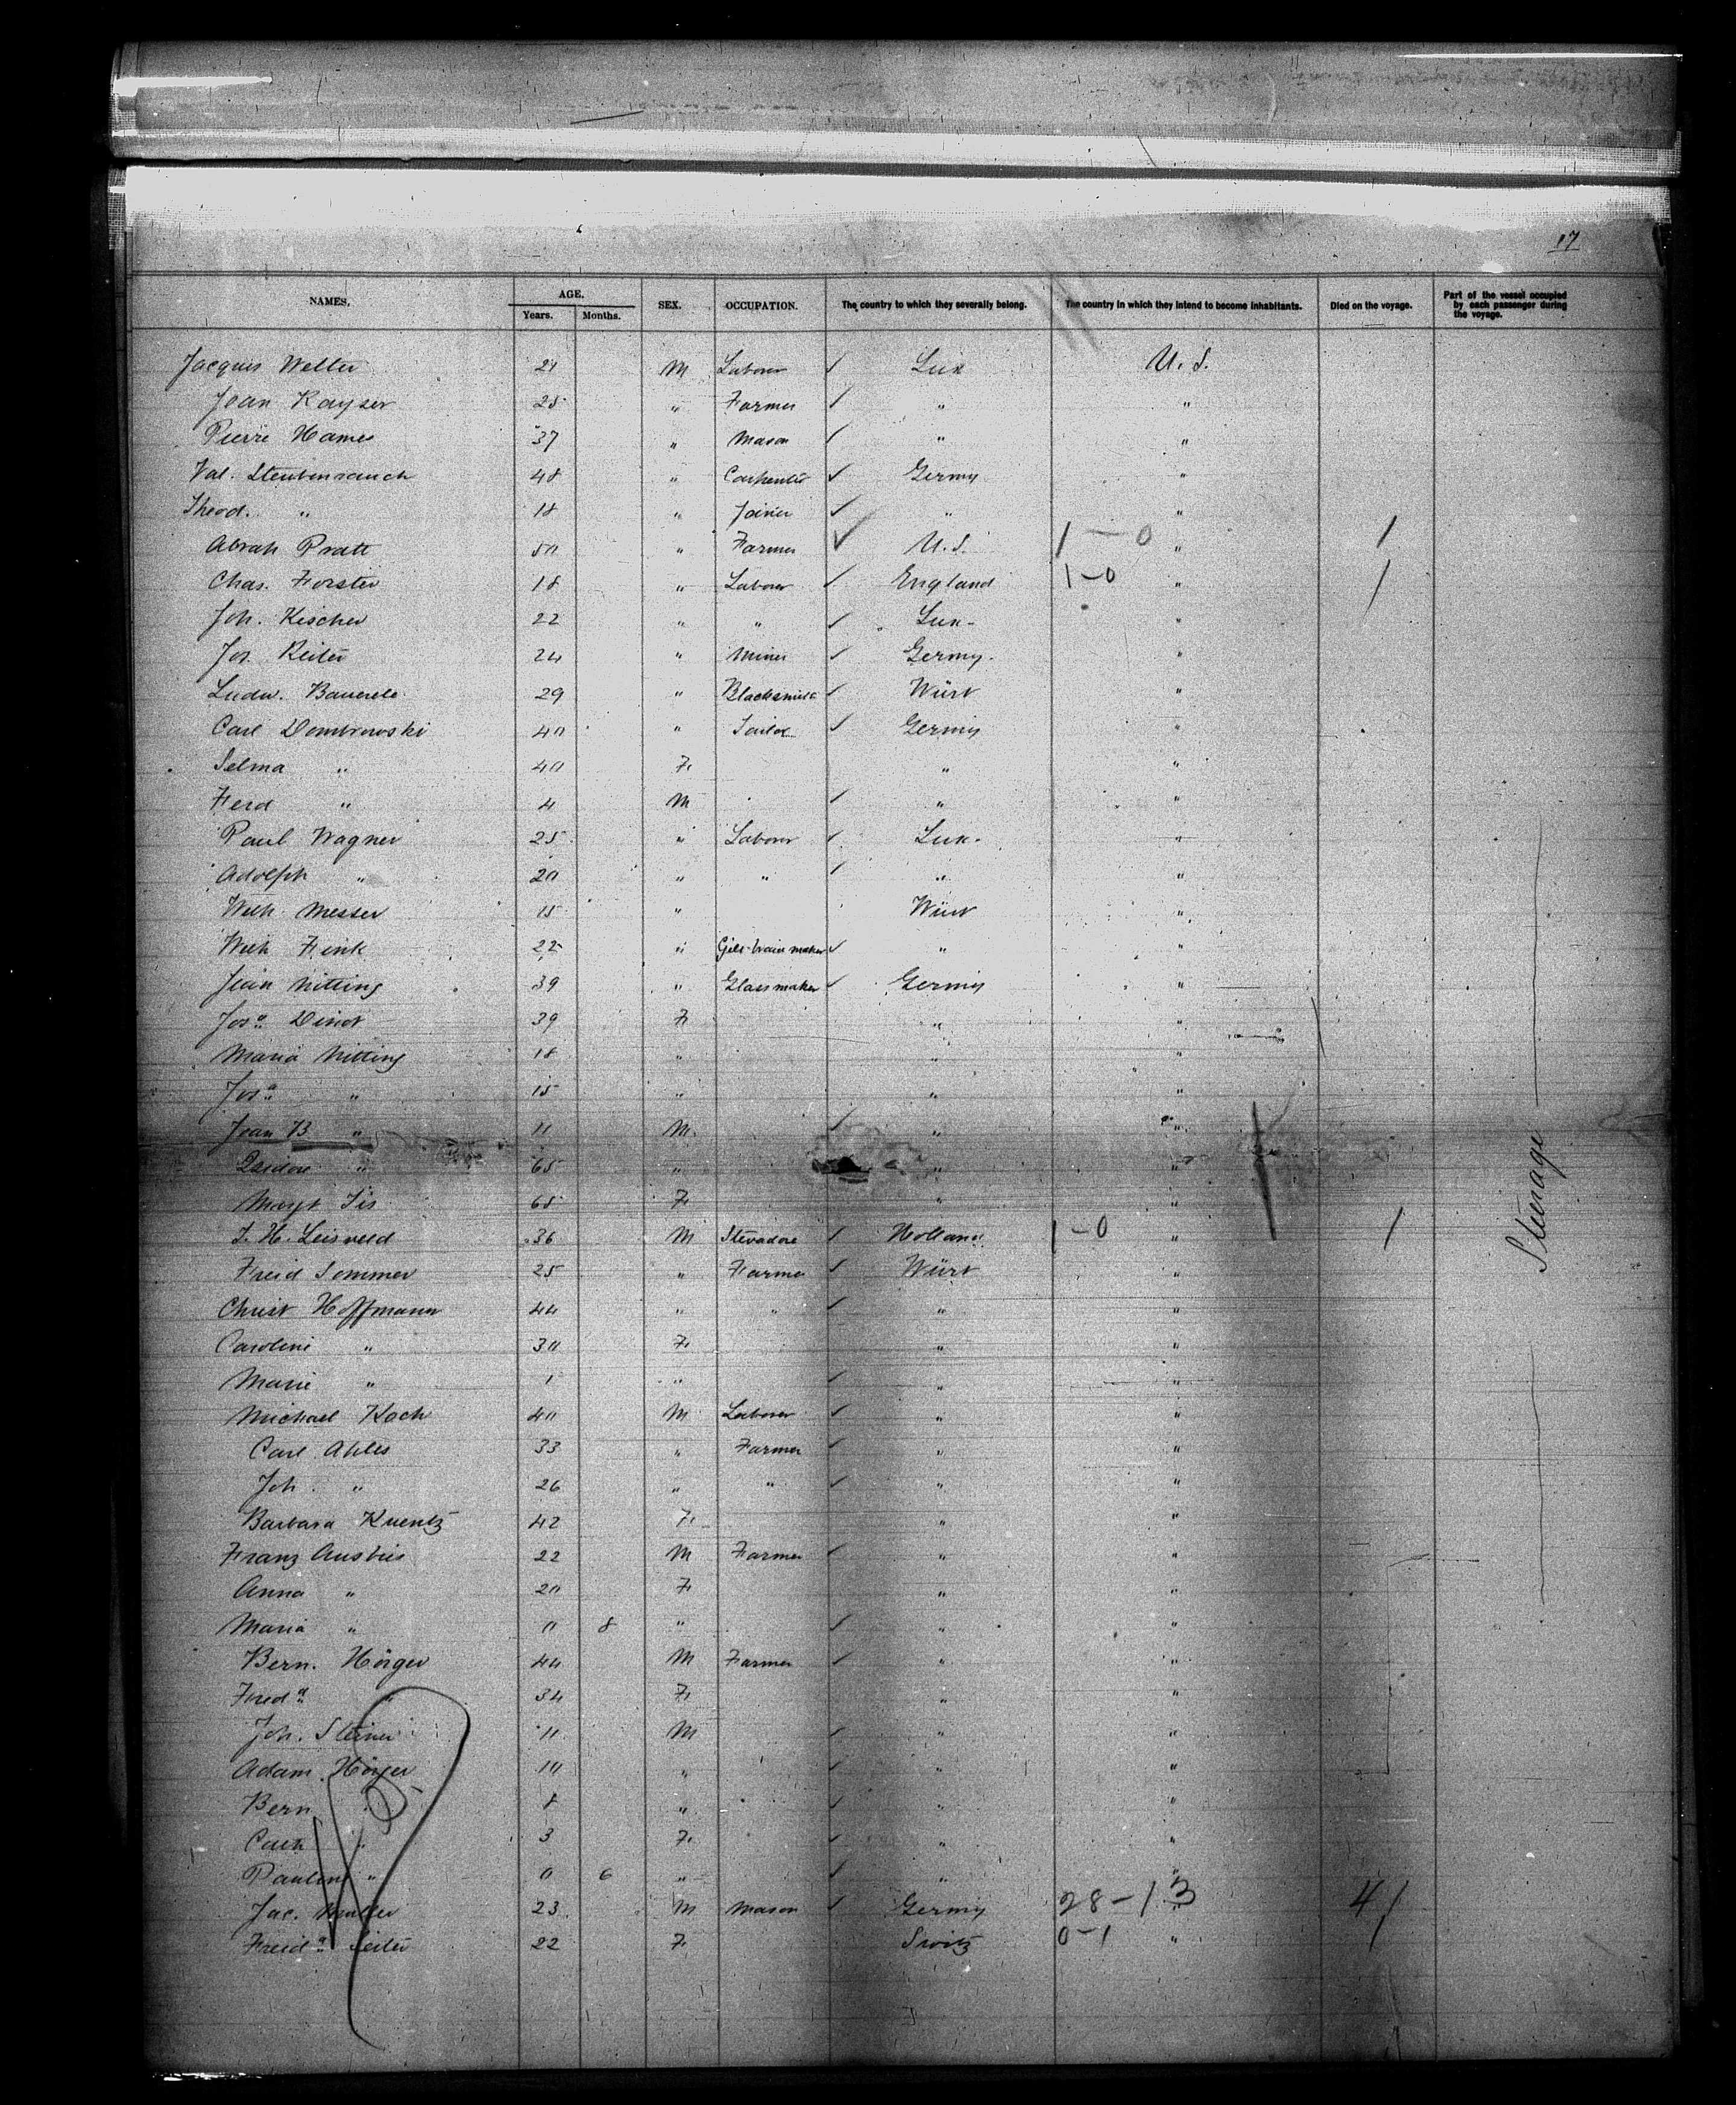 17
NAMES. AGE. SEX. OCCUPATION. The country to which they severally belong. The country in which they intend to become inhabitants. Died on the voyage. Part of the vessel occupied by each passenger during the voyage.
Years. Months.
Jacques Welter 21 M Laborer ✓ Lux U.S.
Jean Kayser 25 " Farmer ✓ " "
Pierre Hames 37 " Mason ✓ " "
Val. Steubenrauch 48 " Carpenter ✓ Germy "
Theod. " 18 " Joiner ✓ " "
Abrah Pratt 50 " Farmer ✓ U.S. 1-0 " /
Chas. Forster 18 " Laborer ✓ England 1-0 " /
Joh. Kischer 22 " " ✓ Lux- "
Jos. Reiter 24 " Miner ✓ Germy. "
Ludw. Bauerele 29 " Blacksmith ✓ Würt "
Carl Dombrowski 40 " Tailor ✓ Germy "
Selma " 40 F " "
Ferd " 4 M ✓ " "
Paul Wagner 25 " Laborer ✓ Lux- "
Adolph " 20 " " ✓ " "
Wilh. Messer 15 " Würt "
Wilh Fink 22 " ✓ " "
Jean Nitting 39 " Glassmaker ✓ Germy "
Josa Dinot 39 F " "
Maria Nitting 18 " " "
Josa " 15 " " "
Jean B " 11 M ✓ " "
Isidore " 65 " " "
Margt 65 F " "
J. H. Leisveld 36 M Stevadore / Holland 1-0 " /
Freid Sommer 25 " Farmer ✓ Würt "
Christ Hoffmann 44 " " ✓ " "
Caroline " 30 F " "
Marie " 1 " ✓ " "
Michael Koch 40 M Laborer ✓ " "
Carl Ahles 33 " Farmer ✓ " "
Joh. " 26 " " ✓ " "
Barbara Kuentz 42 F " "
Franz 22 M Farmer ✓ " "
Anna " 20 F " "
Maria " 0 8 " ✓ " "
Bern. Hörger 44 M Farmer ✓ " "
Freda " 34 F " "
Joh. Steiner 11 M ✓ " "
Adam Hörger 10 " ✓ " "
Bern " 8 " ✓ " "
Cath " 3 F ✓ " "
Pauline " 0 6 " ✓ " "
Jac. Muller 23 M Mason ✓ Germy 28-13 " 4/
Freida Seiler 22 F Switz 0-1 "
Steerage